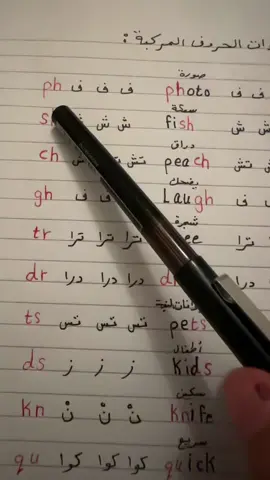 ات الحروف المركبة :
صورة
ph ف ف ف photo ف ف
سمكة
ش ش ش fish ش ش
دراق
ch تش تش تش peach تش
يضحك
gh ف ف Laugh ف ف
شجرة
tr ترا ترا ترا ee ترا
dr درا درا درا d درا
ts تس تس تس pets تس
أطفال
ds ز ز ز kids ز
سكين
kn نْ نْ نْ knife نْ
سريع
qu كوا كوا كوا quick كوا